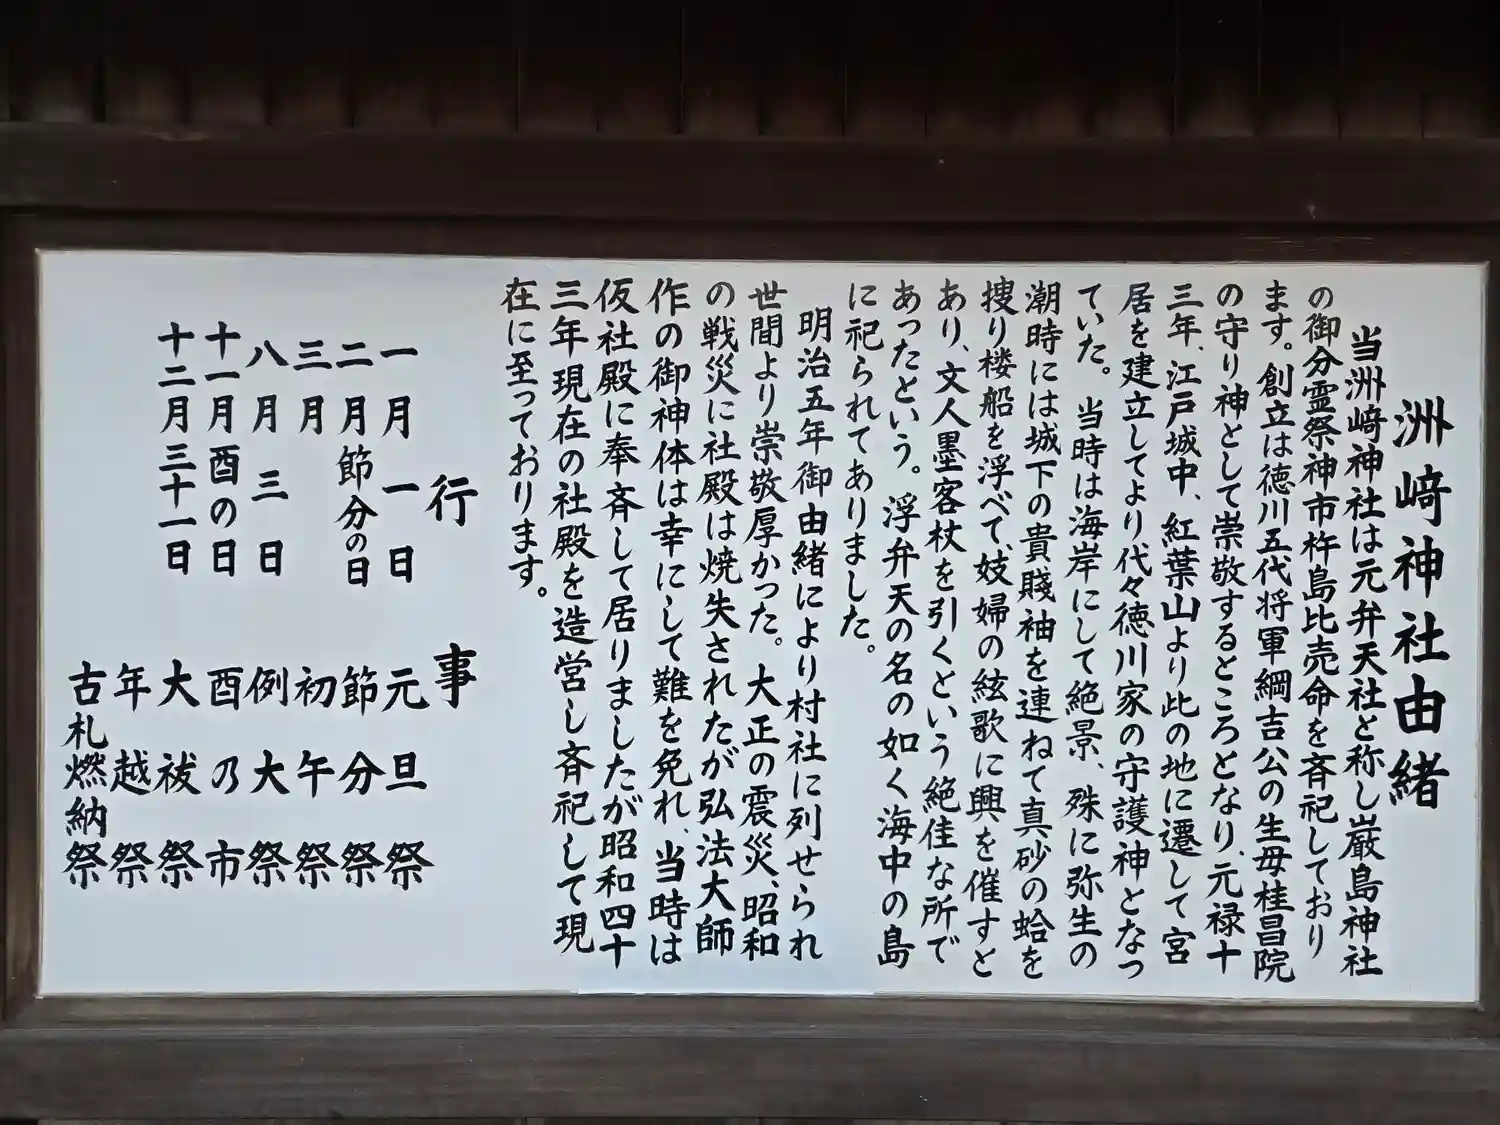 洲﨑神社由緒
当洲﨑神社は元弁天社と称し巌島神社
の御分霊祭神市杵島比売命を斉祀しており
ます。創立は徳川五代将軍綱吉公の生母桂昌院
の守り神として崇敬するところとなり、元禄十
三年、江戸城中、紅葉山より此の地に遷して宮
居を建立してより代々徳川家の守護神となつ
ていた。 当時は海岸にして絶景、殊に弥生の
潮時には城下の貴賤袖を連ねて真砂の蛤を
捜り楼船を浮べて、妓婦の絃歌に興を催すと
あり、文人墨客杖を引くという絶佳な所で
あったという。 浮弁天の名の如く海中の島
に祀られてありました。
明治五年御由緒により村社に列せられ
世間より崇敬厚かった。大正の震災、昭和
の戦災に社殿は焼失されたが弘法大師
作の御神体は幸にして難を免れ、当時は
仮社殿に奉斉して居りましたが昭和四十
三年現在の社殿を造営し斉祀して現
在に至っております。
行事
一月一日 元旦祭
二月節分の日 節分祭
三月 初午祭
八月三日 例大祭
十一月酉の日 酉乃市
十二月三十一日 大祓祭
年越祭
古札燃納祭